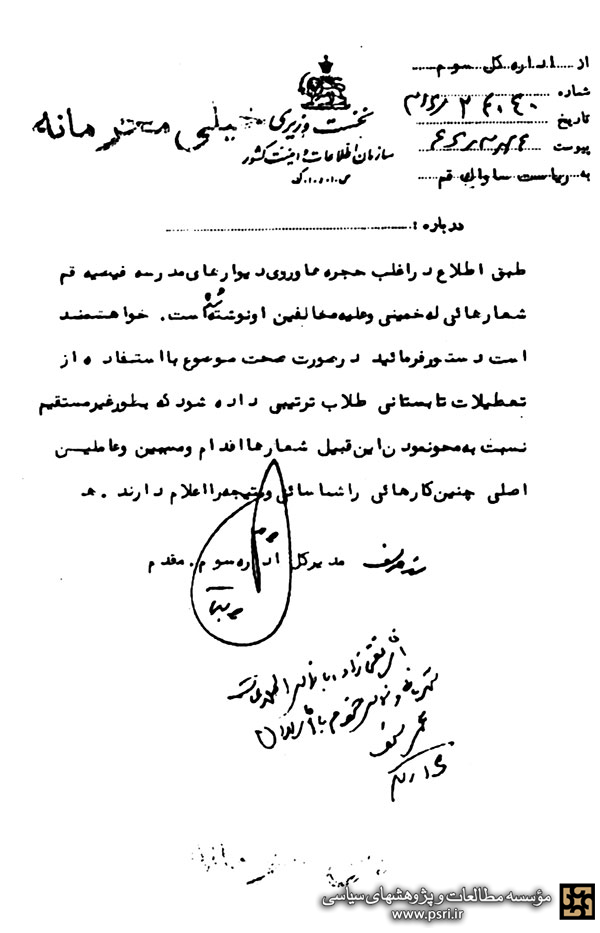 از اداره کل سوم
شماره
تاریخ
پیوست
به ریاست ساواک قم
نخست وزیری
خیلی محرمانه
سازمان اطلاعات و امنیت کشور
س.ا.و.ا.ک
درباره :
طبق اطلاع در اغلب حجره ها و روی دیوارهای مدرسه فیضیه قم
شعارهائی له خمینی و علیه مخالفین او نوشته شده است . خواهشمند
است دستور فرمائید در صورت صحت موضوع با استفاده از
تعطیلات تابستانی طلاب ترتیبی داده شود که بطور غیر مستقیم
نسبت به محو نمودن این قبیل شعارها اقدام و مسببین و عاملین
اصلی چنین کارهائی را شناسائی و نتیجه را اعلام دارند . هـ
مدیر کل اداره سوم . مقدم
مؤسسه مطالعات و پژوهشهای سیاسی
www.psri.ir